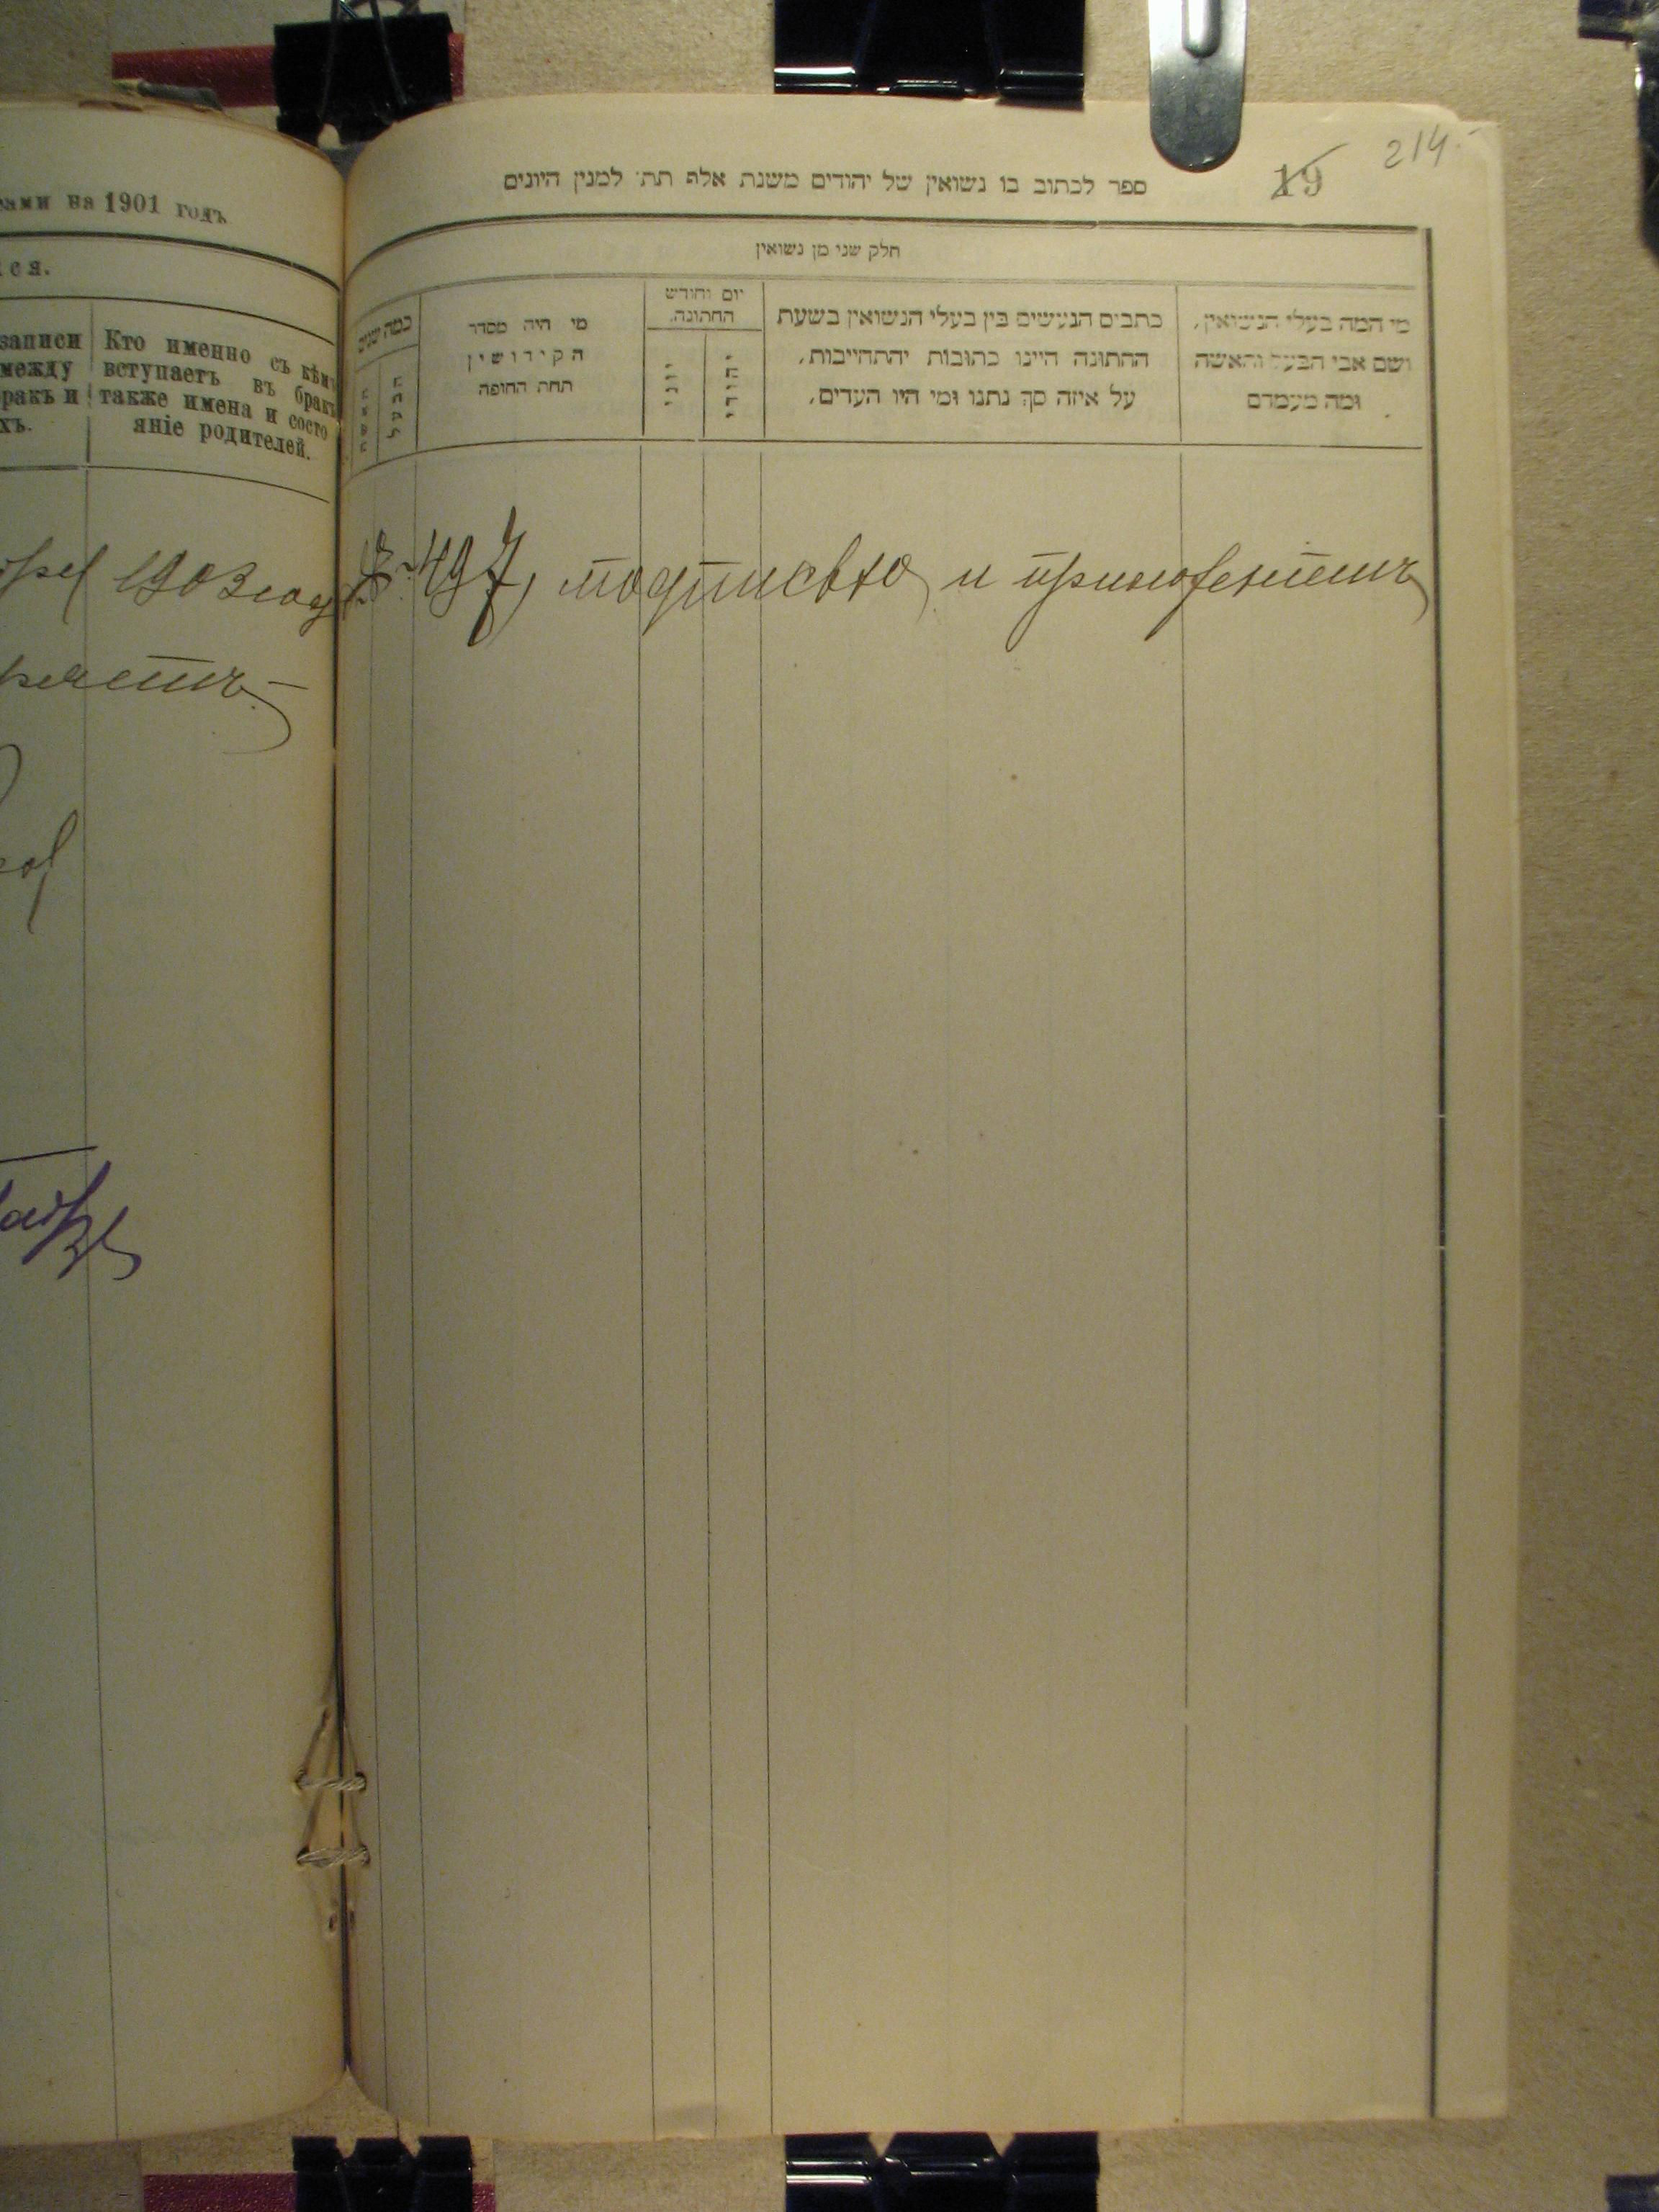 рами на 1901 годъ
записи
между
ракъ и
хъ.
Кто именно съ кѣмъ
вступаетъ въ бракъ
также имена и состо
яніе родителей.
1903 года
214
19
ספר לכתוב בו נשואין של יהודים משנת אלף תת׳ למנין היונים
חלק שני מן נשואין
כמה שנים
מי היה מסדר
הקידושין
תחת החופה
יום וחודש
החתונה.
יוני
יהודי
כתבים הנעשים בין בעלי הנשואין בשעת
החתונה היינו כתובות והתחייבות,
על איזה סך נתנו ומי היו העדים,
מי המה בעלי הנשואין,
ושם אבי הבעל והאשה
ומה מעמדם
497, подписью и приложеніемъ